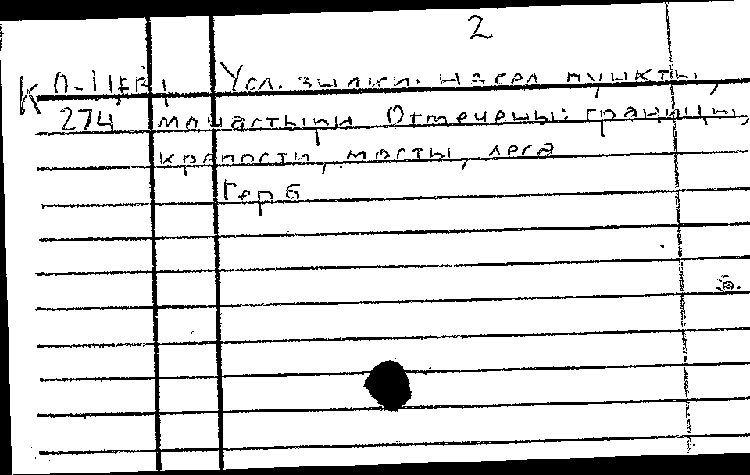 2
Усл. знаки: насел пункты,
К 274 монастыри Отмечены: границы,
крепости, мосты, леса
Герб